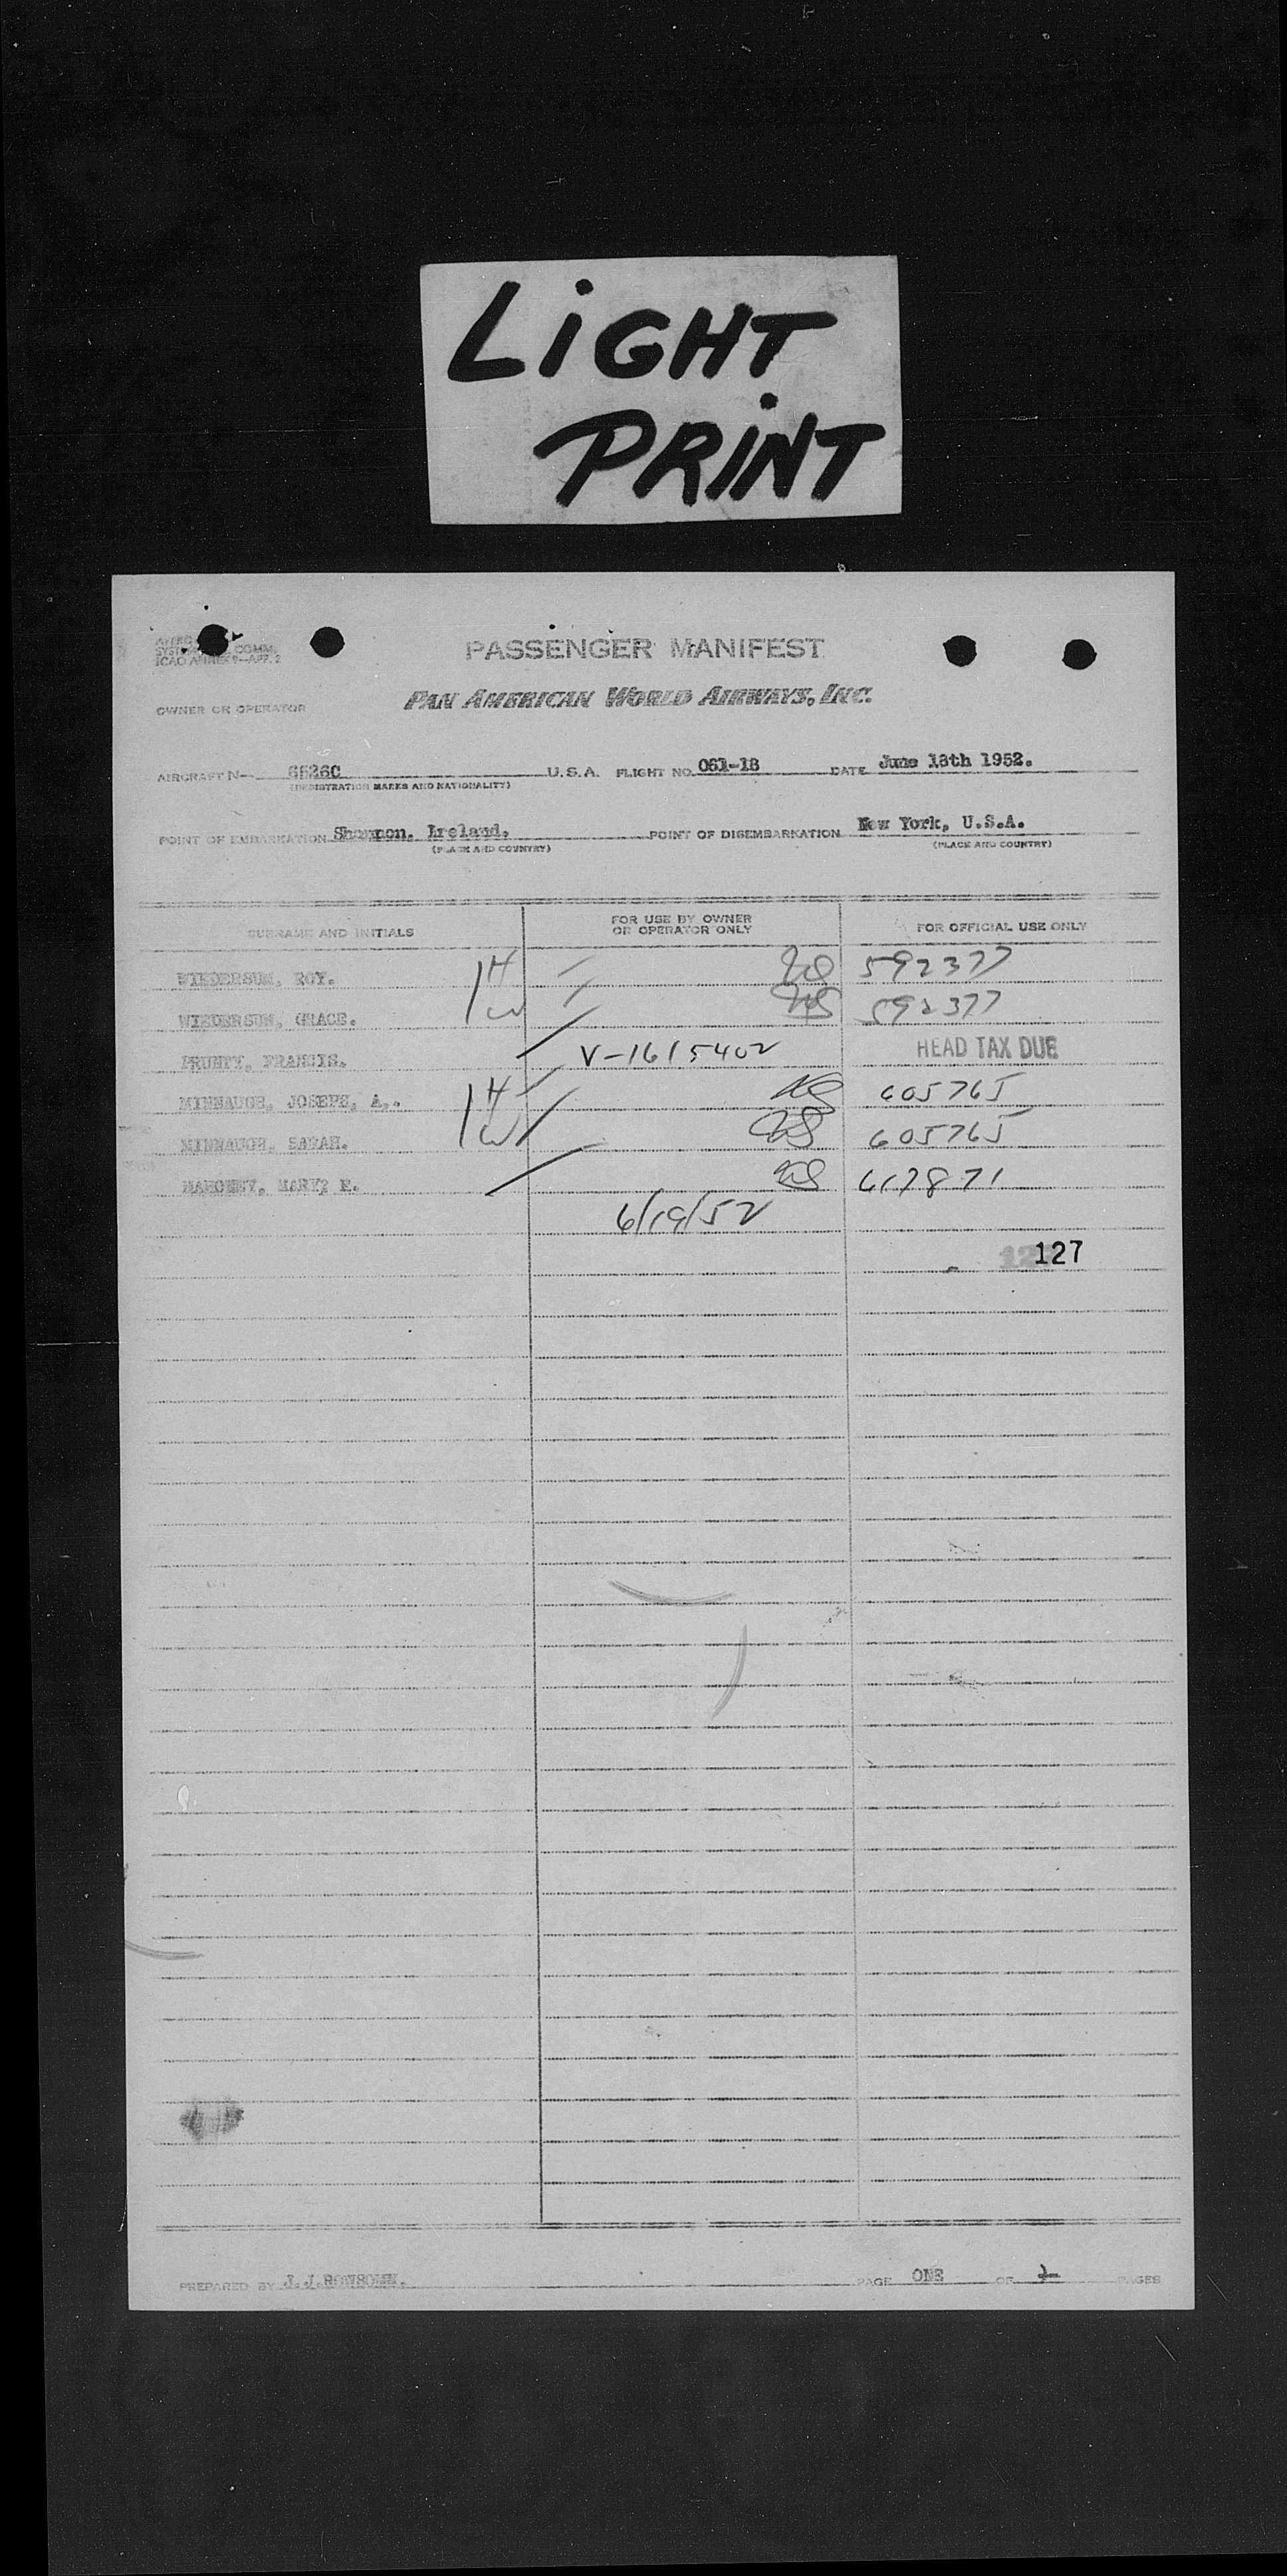 LiGHT
PRINT
PASSENGER MANIFEST
COMM.
ICAO ANNEX 9—APP. 2
OWNER OR OPERATOR
PAN AMERICAN WORLD AIRWAYS, INC.
AIRCRAFT N— U.S.A. FLIGHT NO. 061-18 DATE June 18th 1952.
(REGISTRATION MARKS AND NATIONALITY)
POINT OF EMBARKATION Shannon, Ireland. POINT OF DISEMBARKATION New York, U.S.A.
(PLACE AND COUNTRY) (PLACE AND COUNTRY)
SURNAME AND INITIALS FOR USE BY OWNER OR OPERATOR ONLY FOR OFFICIAL USE ONLY
WIEDERSUM, ROY. 1 H 592377
WIEDERSUM, GRACE. 1 W 592377
PRUNTY, FRANCIS. V-1615402 HEAD TAX DUE
MINNAUGH, JOSEPH, A,. 1 H 605765
MINNAUGH, SARAH. 1 W 605765
MAHONEY, MARY, E. 617871
6/19/52
127
PREPARED BY PAGE ONE OF PAGES